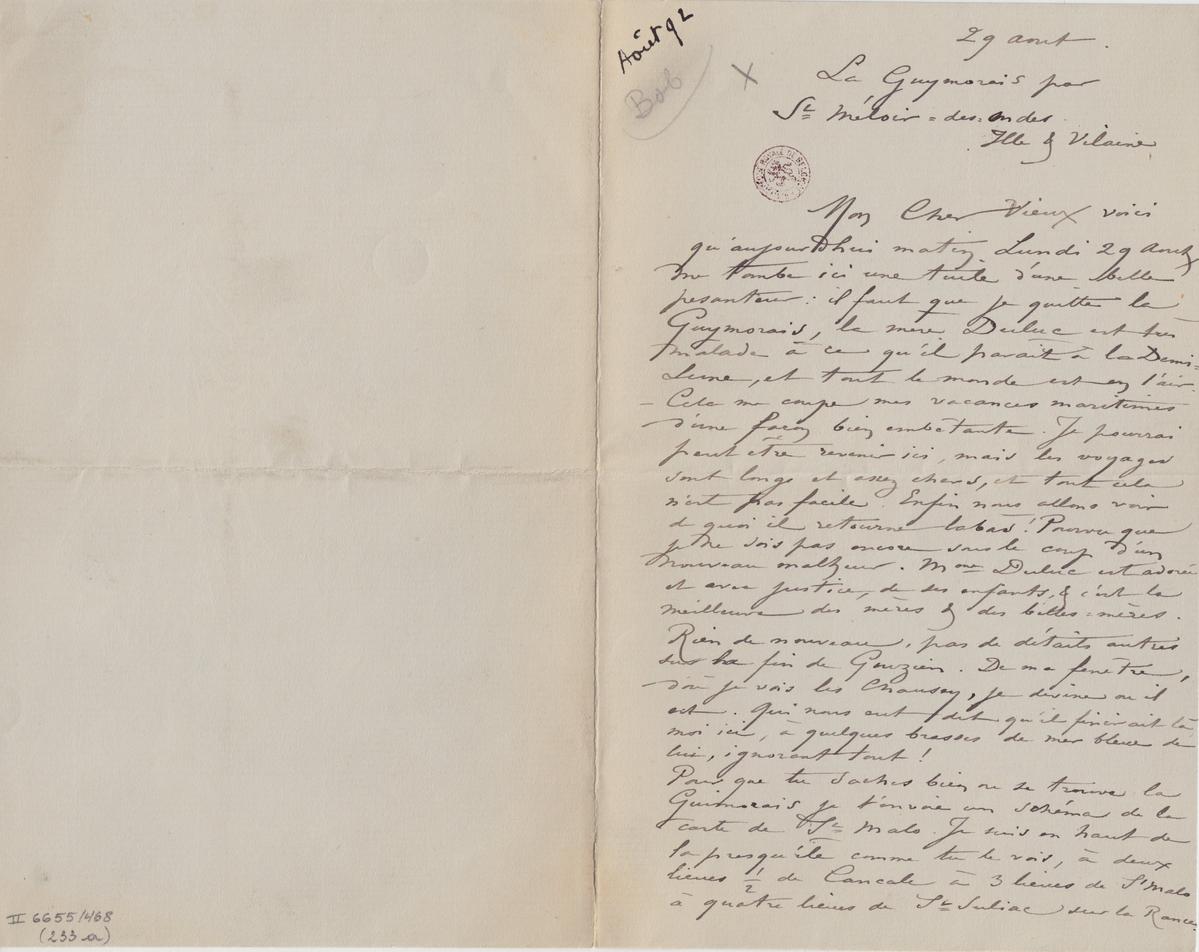 Août 92
Bob
X
29 aout.
La Guymorais par
St Méloir=des=ondes.
Ille & Vilaine
BIBLIOTHÈQUE ROYALE DE BELGIQUE
Mon Cher Vieux voici
qu'aujourd'hui matin Lundi 29 Aout,
me tombe ici une tuile d'une belle
pesanteur: il faut que je quitte la
Guymorais, la mère Duluc est très
malade à ce qu'il parait à la Demi=
Lune, et tout le monde est en l'air.
– Cela me coupe mes vacances maritimes
d'une façon bien embetante. Je pourrai
peut être revenir ici, mais les voyages
sont longs et assez chers, et tout cela
n'est pas facile. Enfin nous allons voir
de quoi il retourne labas! Pourvu que
je ne sois pas encore sous le coup d'un
nouveau malheur. Mme Duluc est adorée
et avec justice, de ses enfants, & c'est la
meilleure des mères & des belles=mères.
Rien de nouveau, pas de détails autres
sur la fin de Gouzien. De ma fenêtre,
d'où je vois les Chausey, je devine ou il
est. Qui nous eut dit qu'il finirait là
moi ici, à quelques brasses de mer bleue de
lui, ignorant tout!
Pour que tu saches bien ou se trouve la
Guimorais je t'envoie un schéma de la
carte de St Malo. Je suis en haut de
la presqu'île comme tu le vois, à deux
lieues 1/2 de Cancale à 3 lieues de St Malo
à quatre lieues de St Suliac sur la Rance,
II 6655/468
(233 a)